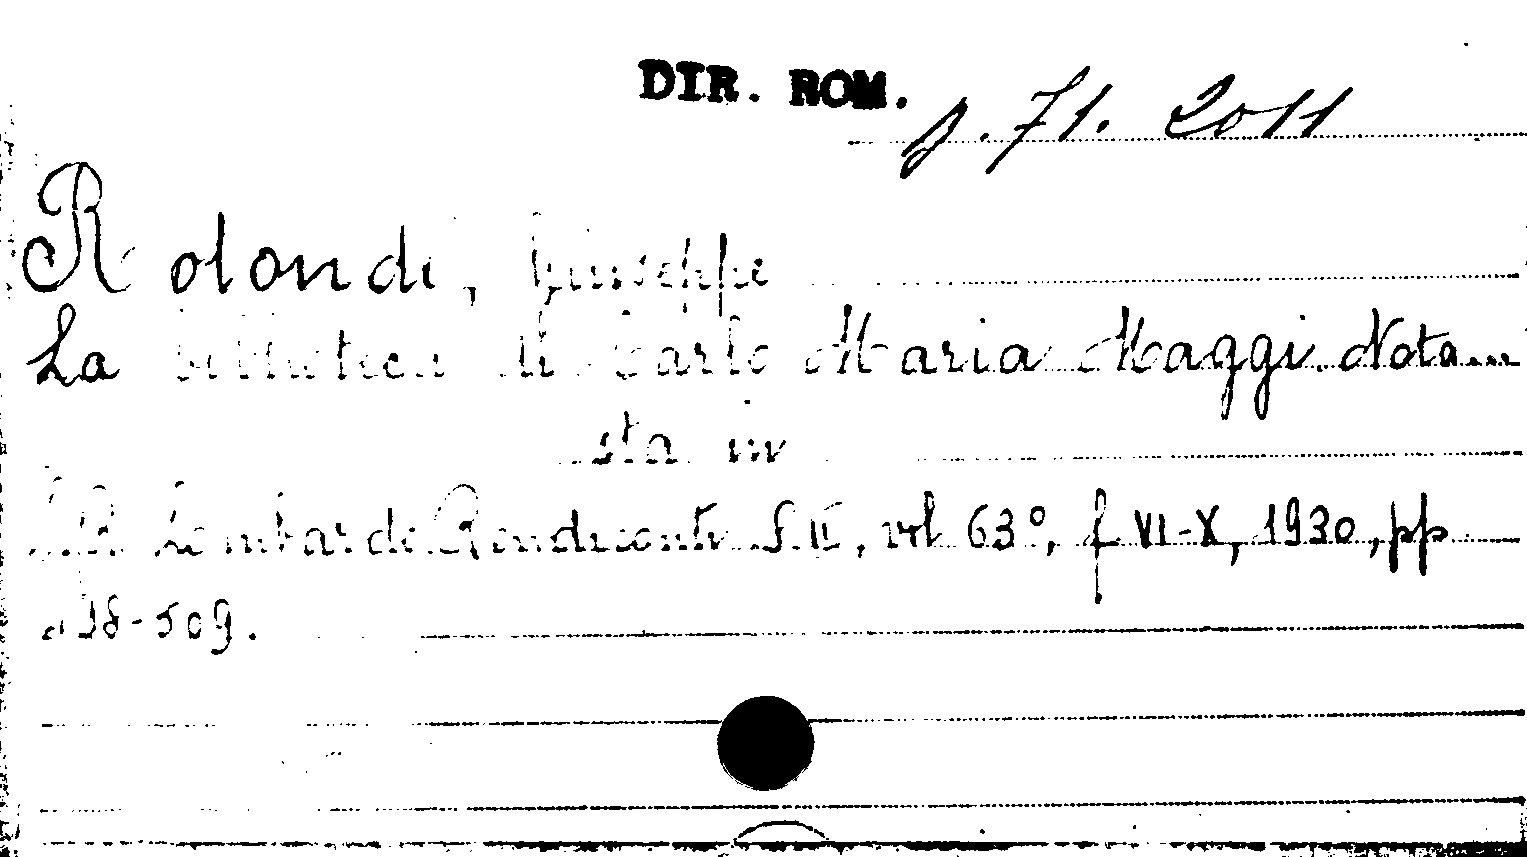 DIR. ROM. p. 71. 2011
Rolondi, Giuseppe
La biblioteca di Carlo Maria Maggi. Nota...
sta in
Lombardo Rendiconti S. II, vol 63°, f VI-X, 1930, pp
-509.